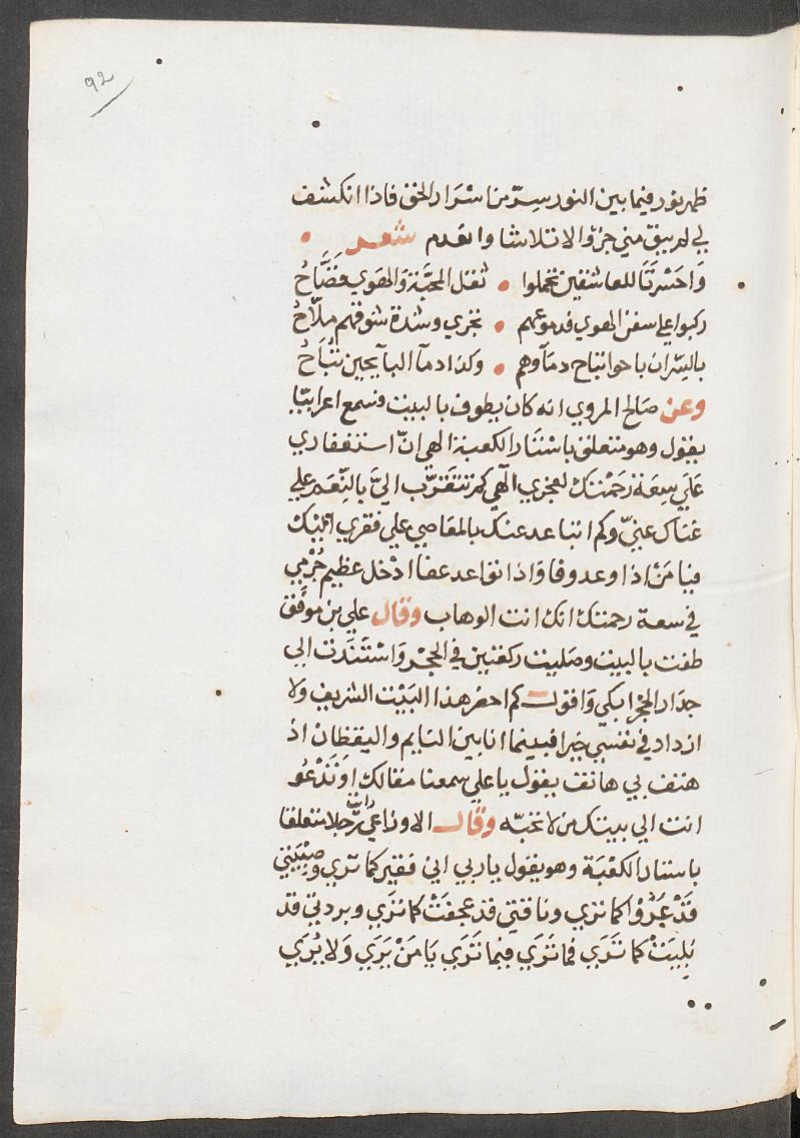 92
ظهر نور فيما بين النور سرّ من اسرار الحق فاذا انكشف
لي لم يبق مني جزؤ الا تلاشا وانعدم شعر
وَاحَسْرتَا للعاشقين تحملوا • ثقل المحبَّة وَالهَوي فضَّاحُ
ركبوا علي سفن الهوي فدموعهم • تجري وشدة شوقهم ملّاحُ
بالسّر ان باحوا تباح دمآوهم • وكذا دمآ البآيحين تُبَاحُ
وعن صَالح المروي انه كان يطوف بالبيت فسمع اعرابيّا
يقول وهو متعلق باستار الكعبة الهي انّ استغفاري
عَلَي سِعَة رَحمَتك لعجزي الٓهي كم تتقرّب اليَّ بالنِّعَم علي
غناك عنيّ وكم اتباعد عنك بالمعاصي علي فقري اليْك
فيا مَنْ اذا وعد وفا وَاذا تواعد عفا ادْخل عظيم جُرْمي
في سعة رحمتك انك انت الوهاب وقال علي بن موفّق
طفت بالبيت وصَليت ركعتين في الحجْر وَاسْتَنَدت الي
جدَار الحجْر ابكي وَاقول كم احضر هذا البَيْت الشريف ولا
ازداد في نفسي خيرا فبينما انا بين النايم واليقظان اذ
هتف بي هاتف يقول يا علي سمعنا مقالك اوَتَدْعُو
انت الي بيتك من لا تحبّه وقال الاوزاعي رايت رَجلا متعلقا
باستار الكعْبَة وهو يقول يا ربي اني فقير كما تري وصِبْيَتي
قَدْ عَرُوْا كما تري وناقتي قد عجفَتْ كما تَرَي وبردتي قد
بُلِيَتْ كما تَرَي فما تَرَي فيما تَرَي يَا مَنْ يَرَي وَلا يُرَي